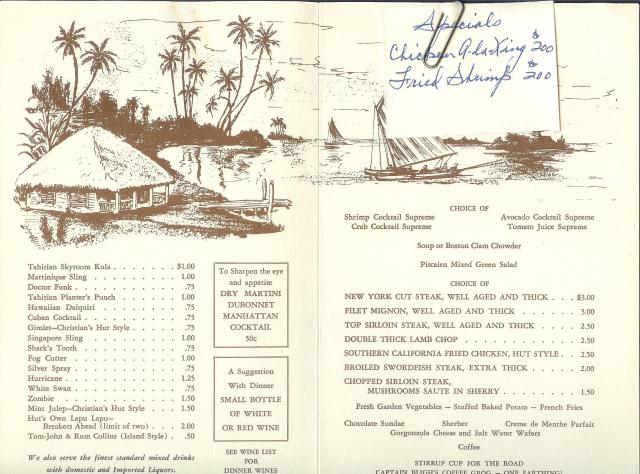 Specials
Chicken A-la-King $2.00
Fried Shrimp $2.00
Tahitian Skyroom Kula . . . . . . . $1.00
Martinique Sling . . . . . . . . . 1.00
Doctor Funk . . . . . . . . . . . .75
Tahitian Planter's Punch . . . . . . 1.00
Hawaiian Daiquiri . . . . . . . . . .75
Cuban Cocktail . . . . . . . . . . .75
Gimlet—Christian's Hut Style . . . . .75
Singapore Sling . . . . . . . . . . 1.00
Shark's Tooth . . . . . . . . . . . .75
Fog Cutter . . . . . . . . . . . . 1.00
Silver Spray . . . . . . . . . . . .75
Hurricane . . . . . . . . . . . . 1.25
White Swan . . . . . . . . . . . . .75
Zombie . . . . . . . . . . . . . 1.50
Mint Julep—Christian's Hut Style . . . 1.50
Hut's Own Lapu Lapu—
Breakers Ahead (limit of two) . . . 2.00
Tom-John & Rum Collins (Island Style) . .50
We also serve the finest standard mixed drinks
with domestic and Imported Liquors.
To Sharpen the eye
and appetite
DRY MARTINI
DUBONNET
MANHATTAN
COCKTAIL
50c
A Suggestion
With Dinner
SMALL BOTTLE
OF WHITE
OR RED WINE
SEE WINE LIST
FOR
DINNER WINES
CHOICE OF
Shrimp Cocktail Supreme Avocado Cocktail Supreme
Crab Cocktail Supreme Tomato Juice Supreme
Soup or Boston Clam Chowder
Pitcairn Mixed Green Salad
CHOICE OF
NEW YORK CUT STEAK, WELL AGED AND THICK . . . $3.00
FILET MIGNON, WELL AGED AND THICK . . . . . . 3.00
TOP SIRLOIN STEAK, WELL AGED AND THICK . . . . 2.50
DOUBLE THICK LAMB CHOP . . . . . . . . . . 2.50
SOUTHERN CALIFORNIA FRIED CHICKEN, HUT STYLE . . 2.50
BROILED SWORDFISH STEAK, EXTRA THICK . . . . . 2.00
CHOPPED SIRLOIN STEAK,
MUSHROOMS SAUTE IN SHERRY . . . . . . . . 1.50
Fresh Garden Vegetables — Stuffed Baked Potato — French Fries
Chocolate Sundae Sherbet Creme de Menthe Parfait
Gorgonzola Cheese and Salt Water Wafers
Coffee
STIRRUP CUP FOR THE ROAD
CAPTAIN BLIGH'S COFFEE GROG — ONE FARTHING!